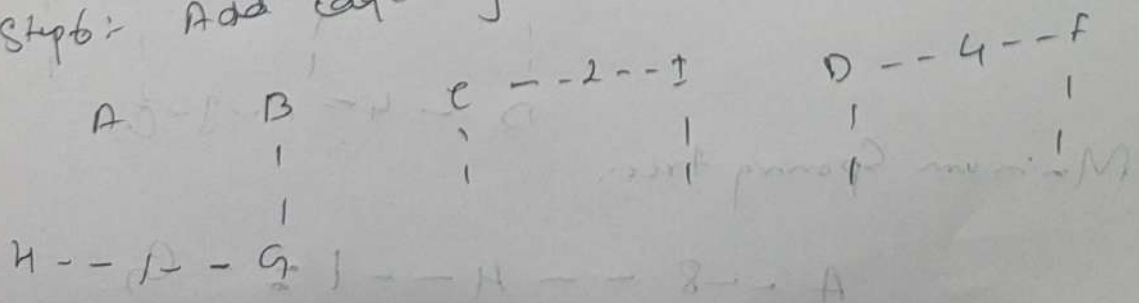 Step6:- Add
A B C - - 2 - - I D - - 4 - - F
H - - 1 - - G